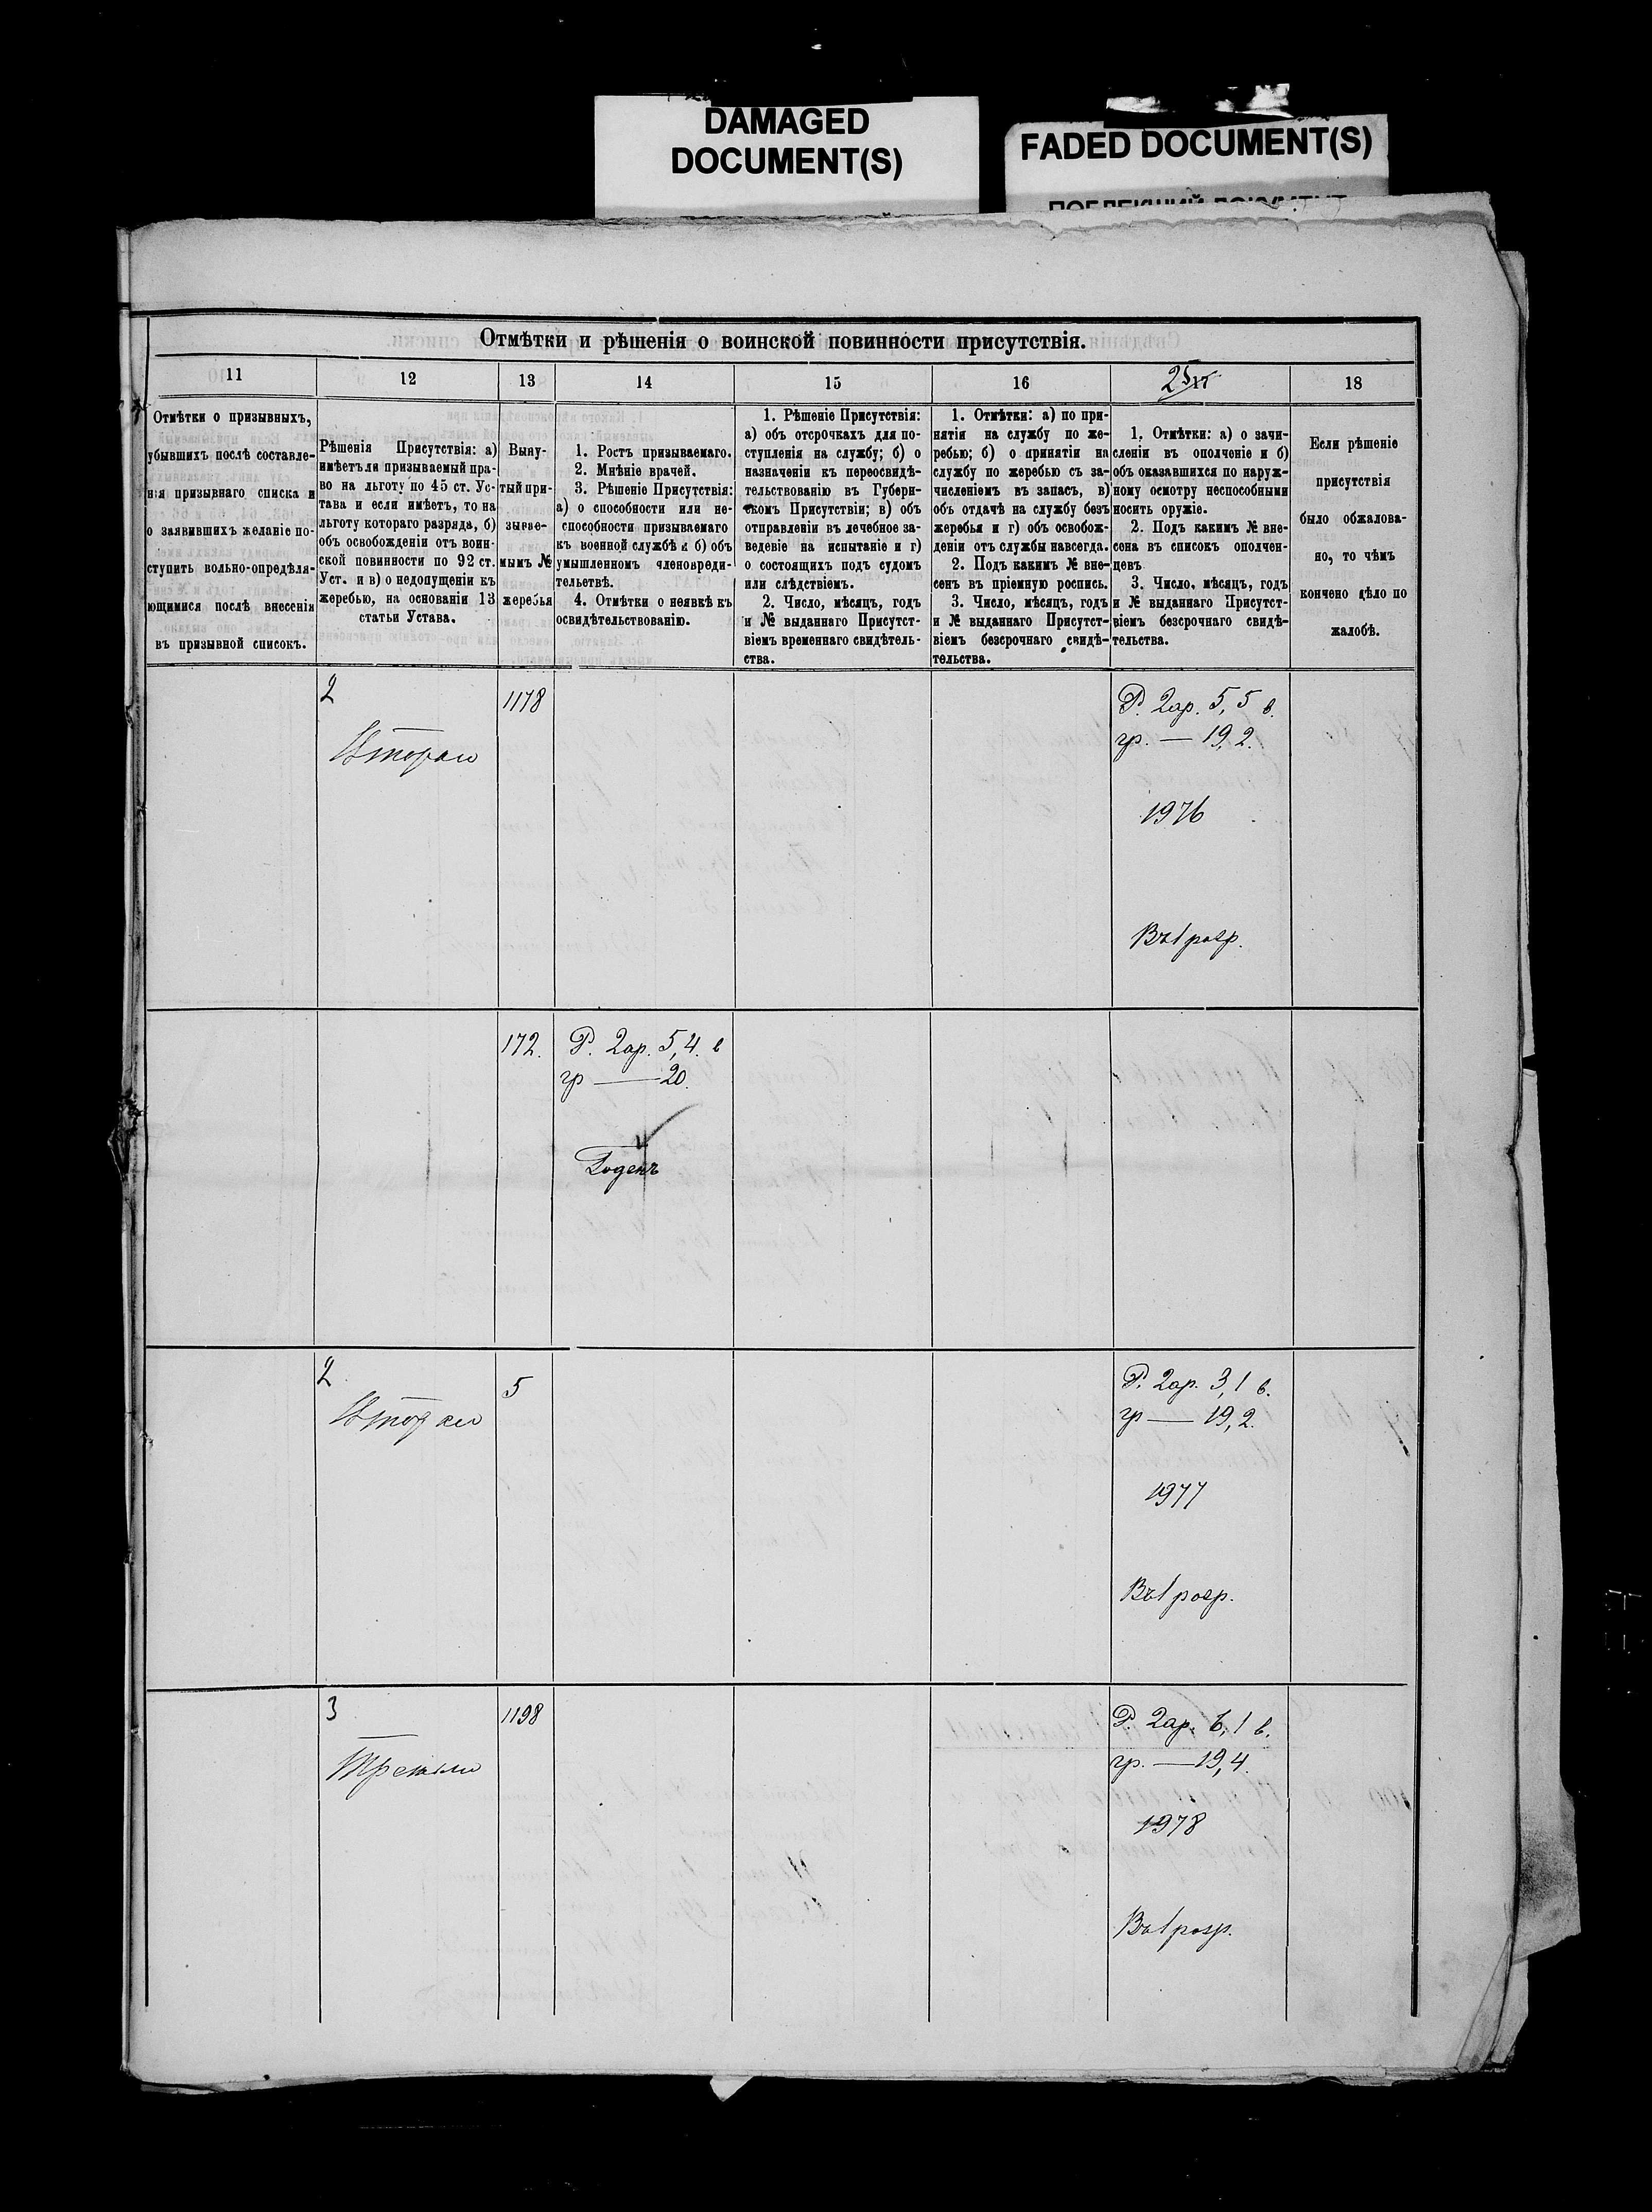 DAMAGED
DOCUMENT(S)
FADED DOCUMENT(S)
Отмѣтки и рѣшенія о воинской повинности присутствія.
11
12
13
14
15
16
25
17
18
Отмѣтки о призывныхъ,
убывшихъ послѣ составле-
нія призывнаго списка и
о заявившихъ желаніе по-
ступить вольно-опредѣля-
ющимися послѣ внесенія
въ призывной списокъ.
Рѣшенія Присутствія: а)
имѣетъ ли призываемый пра-
во на льготу по 45 ст. Ус-
тава и если имѣетъ, то на
льготу котораго разряда, б)
объ освобожденіи отъ воин-
ской повинности по 92 ст.
Уст. и в) о недопущеніи къ
жеребью, на основаніи 13
статьи Устава.
Выну-
тый при-
зывае-
мымъ №
жеребья
1. Ростъ призываемаго.
2. Мнѣніе врачей.
3. Рѣшеніе Присутствія:
а) о способности или не-
способности призываемаго
къ военной службѣ и б) объ
умышленномъ членовреди-
тельствѣ.
4. Отмѣтки о неявкѣ къ
освидѣтельствованію.
1. Рѣшеніе Присутствія:
а) объ отсрочкахъ для по-
ступленія на службу; б) о
назначеніи къ переосвидѣ-
тельствованію въ Губерн-
скомъ Присутствіи; в) объ
отправленіи въ лечебное за-
веденіе на испытаніе и г)
о состоящихъ подъ судомъ
или слѣдствіемъ.
2. Число, мѣсяцъ, годъ
и № выданнаго Присутст-
віемъ временнаго свидѣтель-
ства.
1. Отмѣтки: а) по при-
нятія на службу по же-
ребью; б) о принятіи на
службу по жеребью съ за-
численіемъ въ запасъ, в)
объ отдачѣ на службу безъ
жеребья и г) объ освобож-
деніи отъ службы навсегда.
2. Подъ какимъ № вне-
сенъ въ пріемную роспись.
3. Число, мѣсяцъ, годъ
и № выданнаго Присутст-
віемъ безсрочнаго свидѣ-
тельства.
1. Отмѣтки: а) о зачи-
сленіи въ ополченіе и б)
объ оказавшихся по наруж-
ному осмотру неспособными
носить оружіе.
2. Подъ какимъ № вне-
сена въ списокъ ополчен-
цевъ
3. Число, мѣсяцъ, годъ
и № выданнаго Присутст-
віемъ безсрочнаго свидѣ-
тельства.
Если рѣшеніе
присутствія
было обжалова-
но, то чѣмъ
кончено дѣло по
жалобѣ.
2
Вторая
1178
Р. 2ар. 5,5 в.
гр. — 19,2.
1976
Въ 1 разр.
172.
Р. 2ар. 5,4. в
гр — 20.
Годенъ
2
Вторая
5
Р. 2ар. 3,1 в.
гр — 19,2.
1977
Въ 1 разр.
3
Третья
1198
Р. 2ар. 6,1 в.
гр. — 19,4.
1978
Въ 1 разр.